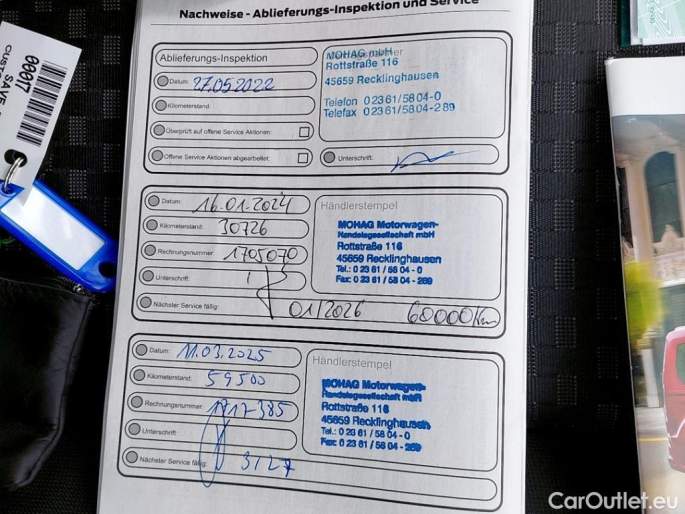 Nachweise - Ablieferungs-Inspektion und Service
Ablieferungs-Inspektion
Datum: 27.05.2022
Kilometerstand:
Überprüft auf offene Service Aktionen:
Offene Service Aktionen abgearbeitet:
MOHAG mbH
Rottstraße 116
45659 Recklinghausen
Telefon 0 23 61/58 04-0
Telefax 0 23 61/58 04-2 89
Unterschrift:
Datum: 16.01.2024
Kilometerstand: 30726
Rechnungsnummer: 1705070
Unterschrift:
Nächster Service fällig: 01/2026 60000Km
Händlerstempel
MOHAG Motorwagen-
Handelsgesellschaft mbH
Rottstraße 116
45659 Recklinghausen
Tel.: 0 23 61 / 58 04 - 0
Fax: 0 23 61 / 58 04 - 289
Datum: 11.03.2025
Kilometerstand: 59500
Rechnungsnummer: 1717385
Unterschrift:
Nächster Service fällig: 3/27
Händlerstempel
MOHAG Motorwagen-
Handelsgesellschaft mbH
Rottstraße 116
45659 Recklinghausen
Tel.: 0 23 61 / 58 04 - 0
Fax: 0 23 61 / 58 04 - 289
00017
SAVE
CUST
CarOutlet.eu